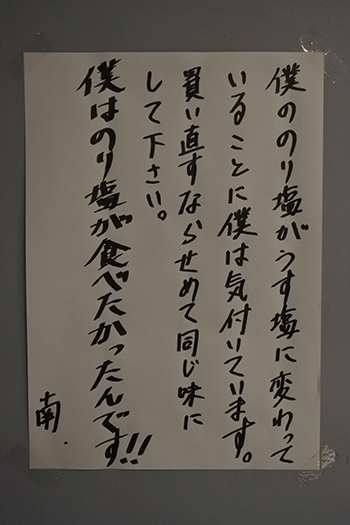 僕ののり塩がうす塩に変わって
いることに僕は気付いています。
買い直すならせめて同じ味に
して下さい。
僕はのり塩が食べたかったんです!!
南.